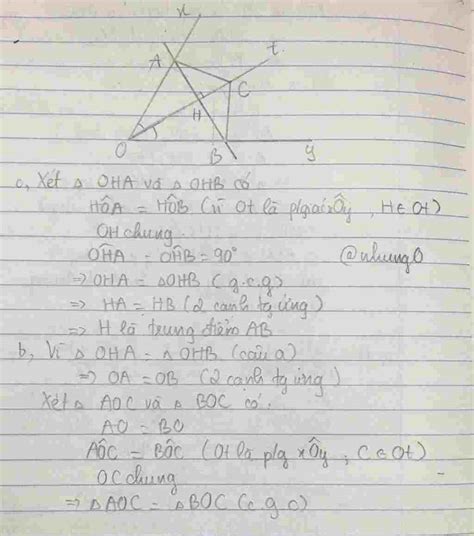 x
A
t
C
H
O
B
y
a, Xét △ OHA và △ OHB có
HÔA = HÔB (vì Ot là p/giác xÔy, H∈Ot)
OH chung
OĤA = OĤB = 90°
@nhung0
⇒ OHA = △OHB (g.c.g)
⇒ HA = HB (2 cạnh tg ứng)
⇒ H là trung điểm AB
b, Vì △ OHA = △ OHB (câu a)
⇒ OA = OB (2 cạnh tg ứng)
Xét △ AOC và △ BOC có.
AO = BO
AÔC = BÔC (Ot là p/g xÔy, C∈Ot)
OC chung
⇒ △AOC = △BOC (c.g.c)